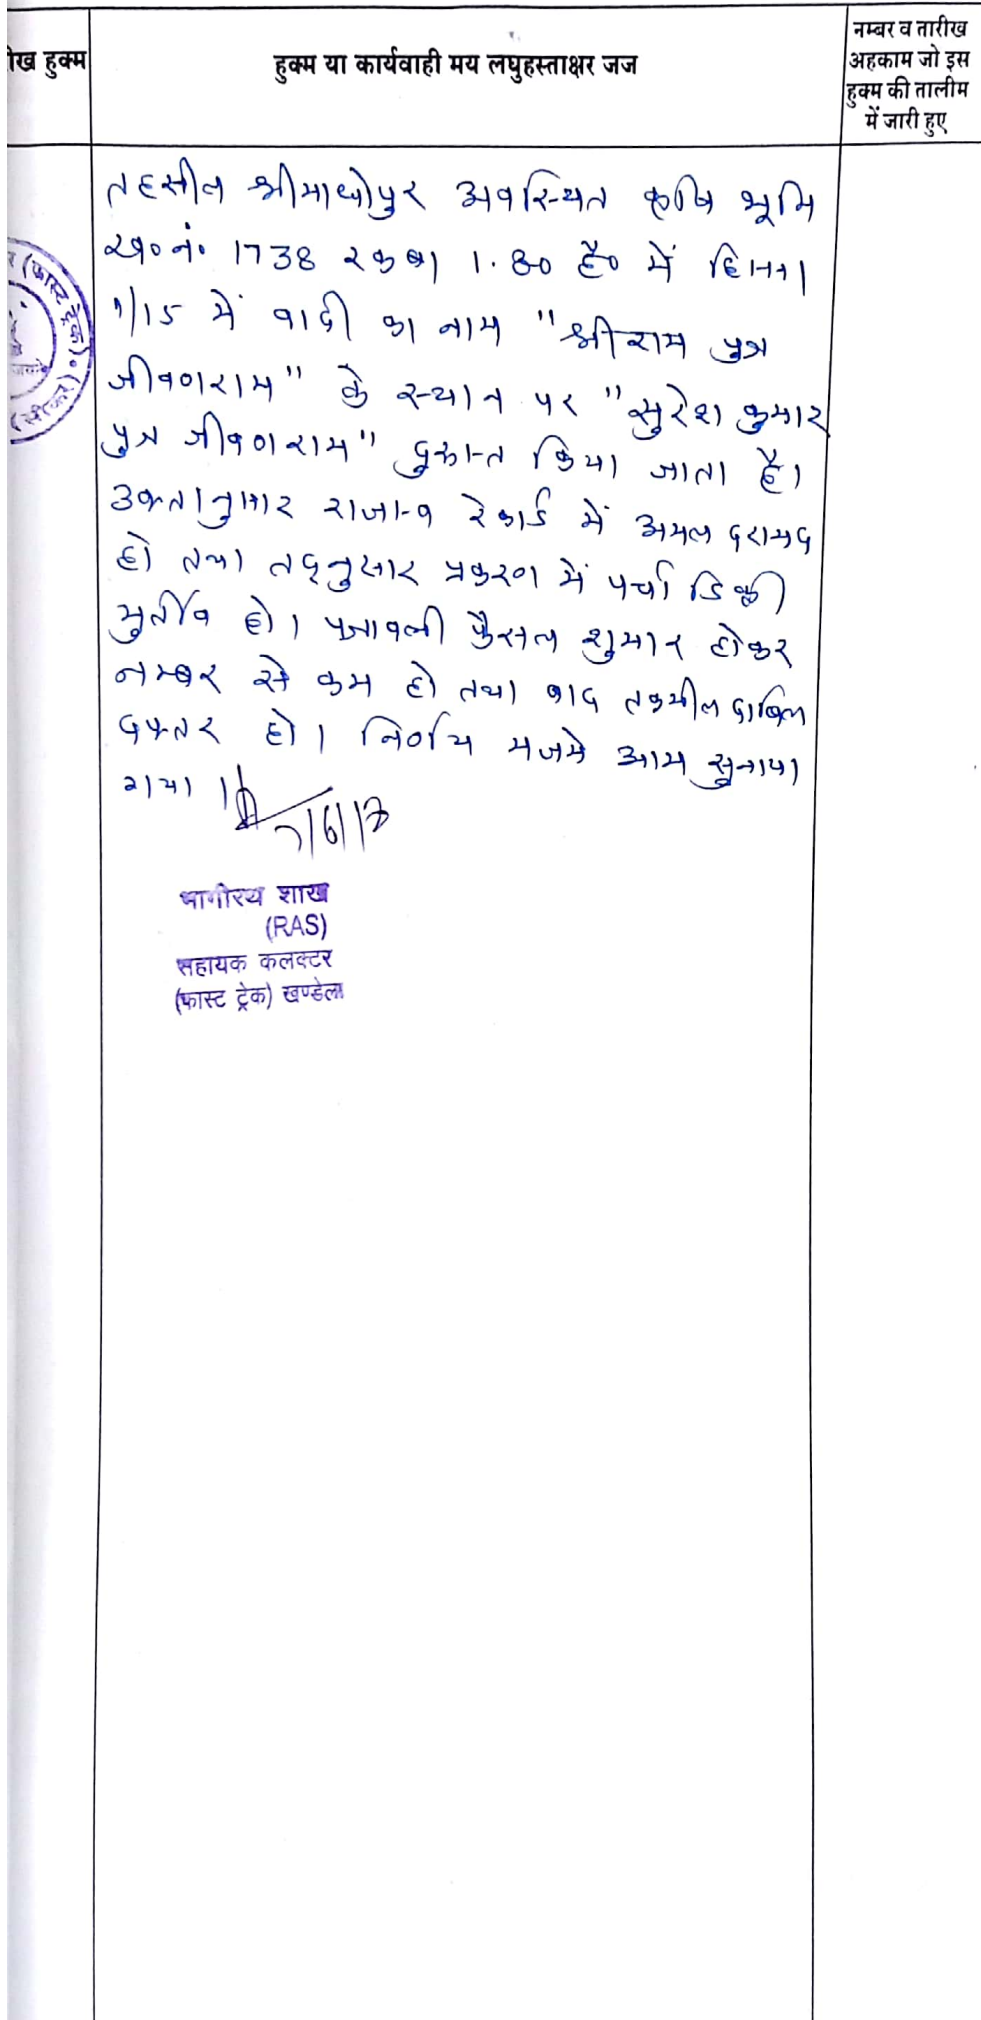 ीख हुक्म
हुक्म या कार्यवाही मय लघुहस्ताक्षर जज
नम्बर व तारीख
अहकाम जो इस
हुक्म की तालीम
में जारी हुए
तहसील श्रीमाधोपुर अवस्थित कृषि भूमि
ख० नं० 1738 रकबा 1.80 है० में हिस्सा
1/15 में वादी का नाम "श्रीराम पुत्र
जीवणराम" के स्थान पर "सुरेश कुमार
पुत्र जीवणराम" दुरूस्त किया जाता है।
उक्तानुसार राजस्व रेकार्ड में अमल दरामद
हो तथा तद्नुसार प्रकरण में पर्चा डिक्री
मुर्तीब हो। पत्रावली फैसल शुमार होकर
नम्बर से कम हो तथा बाद तकमील दाखिल
दफ्तर हो। निर्णय मजमे आम सुनाया
गया।
7/6/17
भागीरथ शाख
(RAS)
सहायक कलक्टर
(फास्ट ट्रेक) खण्डेला
(फास्ट ट्रेक)
(सीकर)